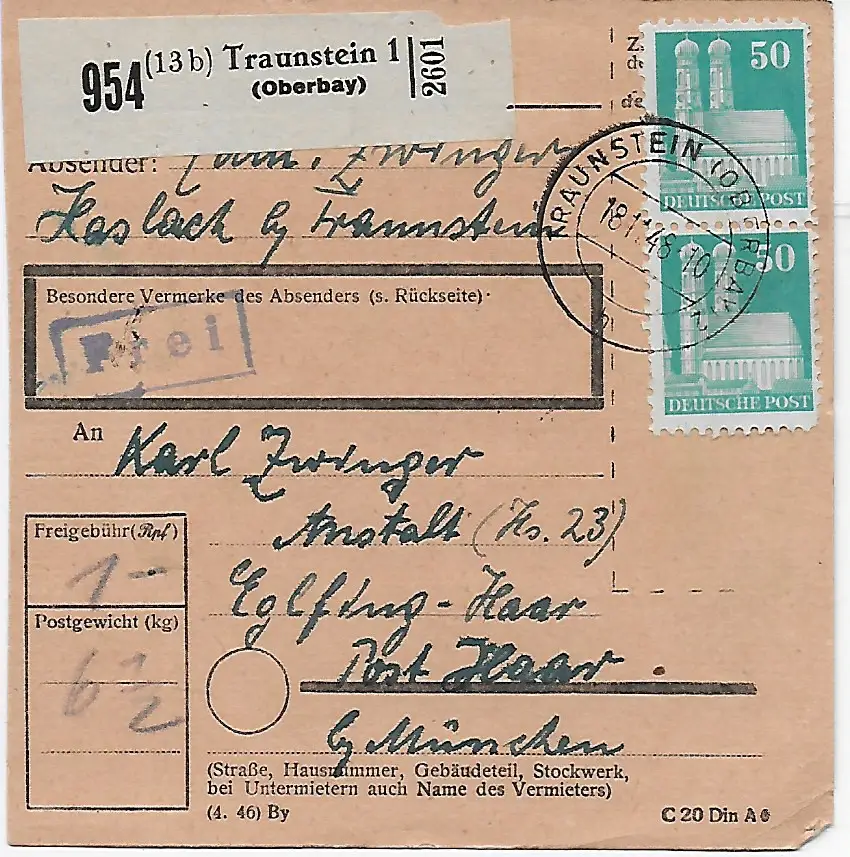 954 (13b) Traunstein 1
(Oberbay)
2601
Absender: Fam. Zwinger
Haslach by Traunstein
50
DEUTSCHE POST
50
DEUTSCHE POST
TRAUNSTEIN (OBERBAY) 2
Besondere Vermerke des Absenders (s. Rückseite)·
Frei
An Karl Zwinger
Anstalt (Hs. 23)
Eglfing-Haar
Post Haar
by München
Freigebühr (Rpf)
1 –
Postgewicht (kg)
6 1/2
(Straße, Hausnummer, Gebäudeteil, Stockwerk,
bei Untermietern auch Name des Vermieters)
(4. 46) By
C 20 Din A6